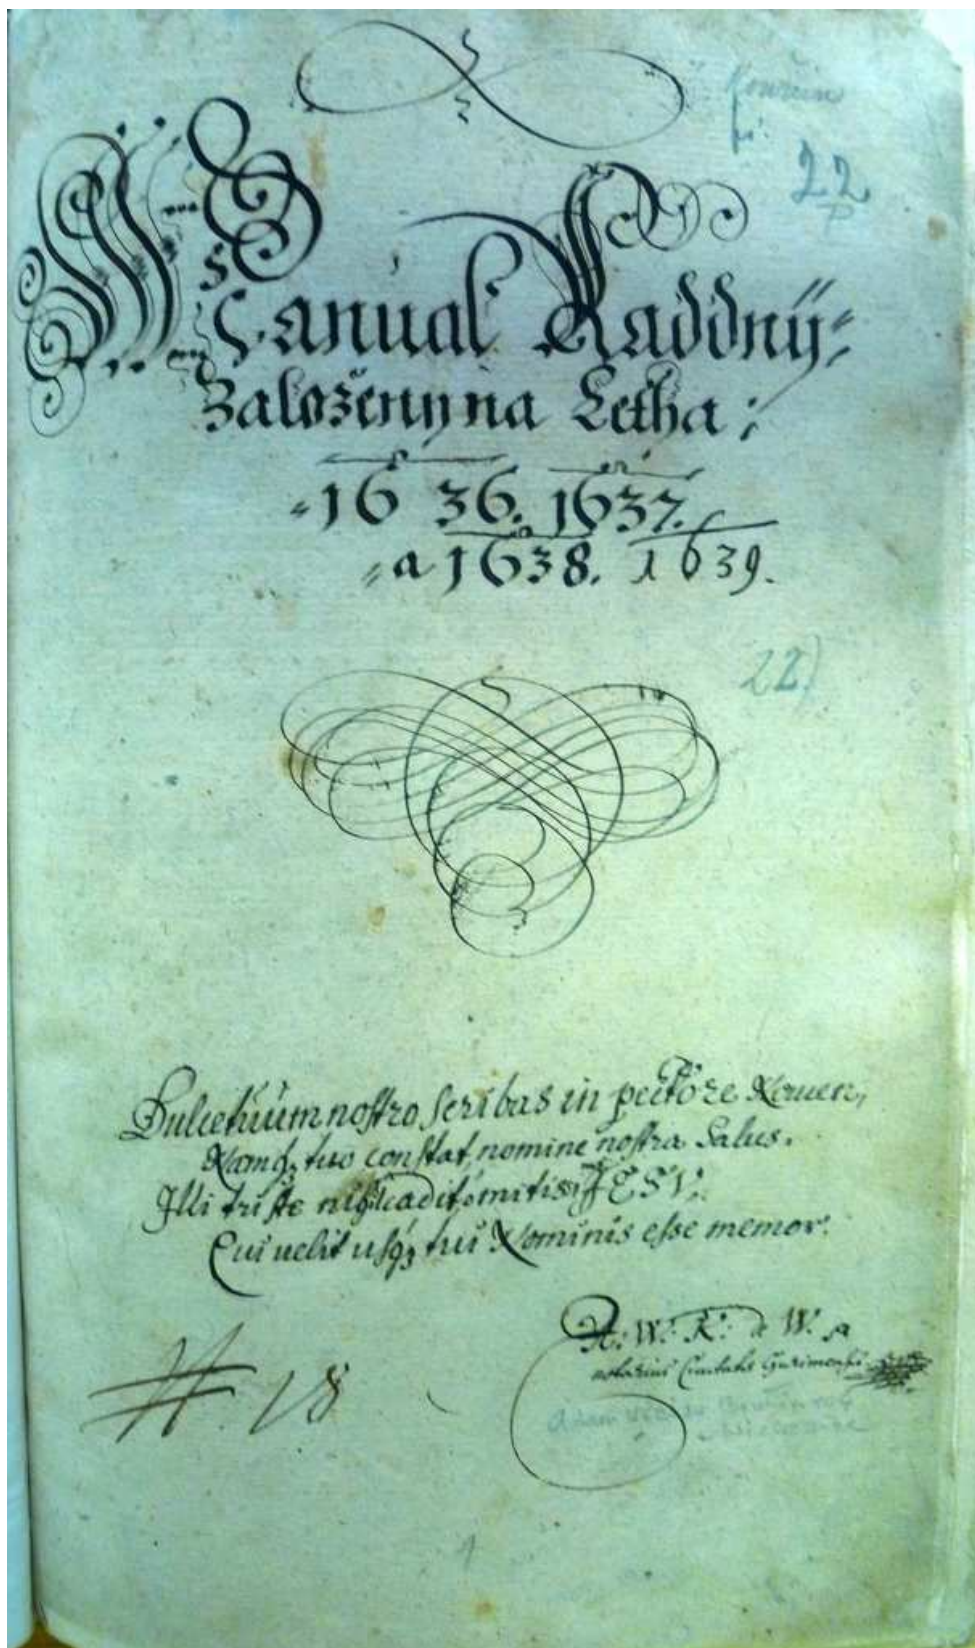 Kouřim
22
Manual Raddný
Založený na Letha;
1636. 1637.
a 1638. 1639.
22)
Dulce tuum nostro scribas in pectore Nomen,
Namq; tuo constat nomine nostra Salus.
Illi triste nihil cadit, ô mitis JESV:
Cui velit usq; tui Nominis esse memor.
A: W: K: de W.
notarius Civitatis Gurimensis
Adam
# 18
1